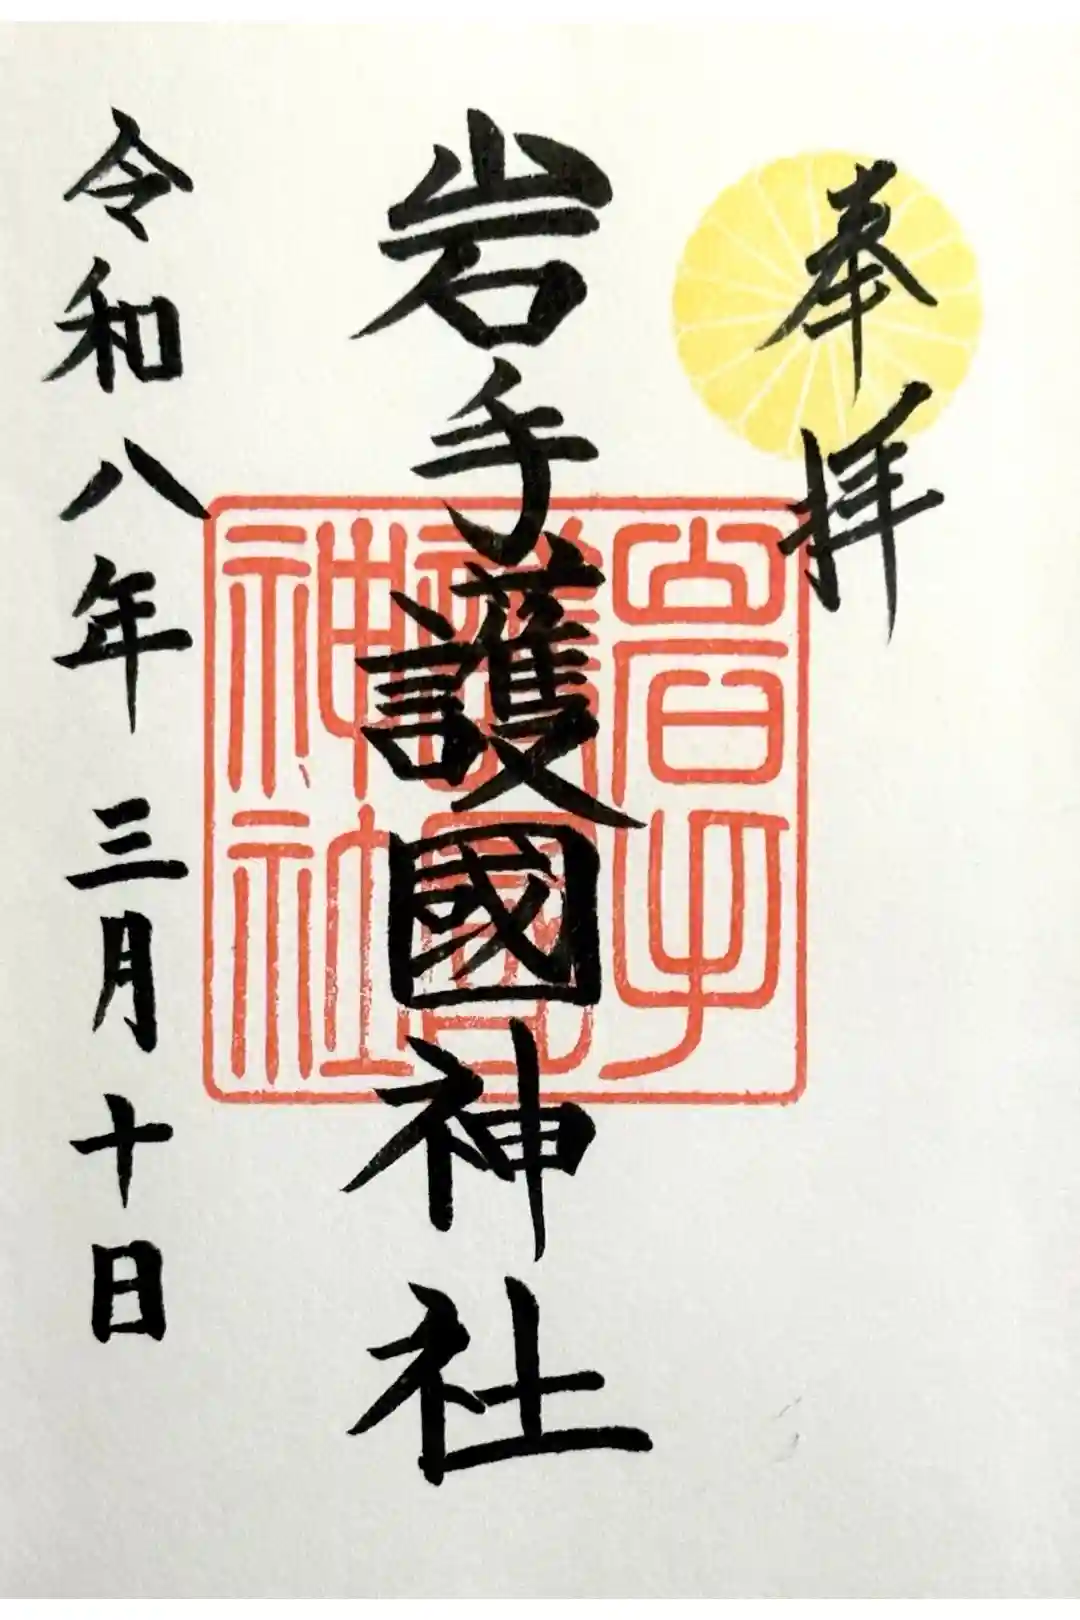 奉拝
岩手護國神社
岩手
護国
神社
令和八年三月十日